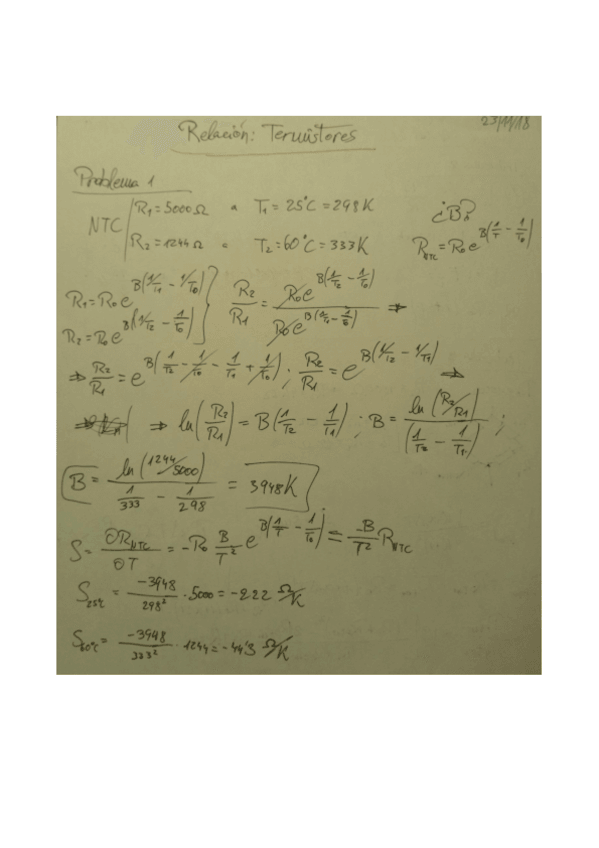 23/11/18
Relación: Termistores
Problema 1
NTC | R₁ = 5000 Ω a T₁ = 25°C = 298 K ¿B?
R₂ = 1244 Ω a T₂ = 60°C = 333 K R_NTC = R₀ e^B(1/T - 1/T₀)
R₁ = R₀ e^B(1/T₁ - 1/T₀)
R₂ = R₀ e^B(1/T₂ - 1/T₀) } R₂/R₁ = R₀ e^B(1/T₂ - 1/T₀) / R₀ e^B(1/T₁ - 1/T₀) ⇒
⇒ R₂/R₁ = e^B(1/T₂ - 1/T₀ - 1/T₁ + 1/T₀) ; R₂/R₁ = e^B(1/T₂ - 1/T₁) ⇒
⇒ ⇒ ln(R₂/R₁) = B(1/T₂ - 1/T₁) ; B = ln(R₂/R₁) / (1/T₂ - 1/T₁) ;
B = ln(1244/5000) / (1/333 - 1/298) = 3948 K
S = ∂R_NTC/∂T = -R₀ B/T² e^B(1/T - 1/T₀) = -B/T² R_NTC
S_25°C = -3948/298² · 5000 = -222 Ω/K
S_60°C = -3948/333² · 1244 = -44'3 Ω/K